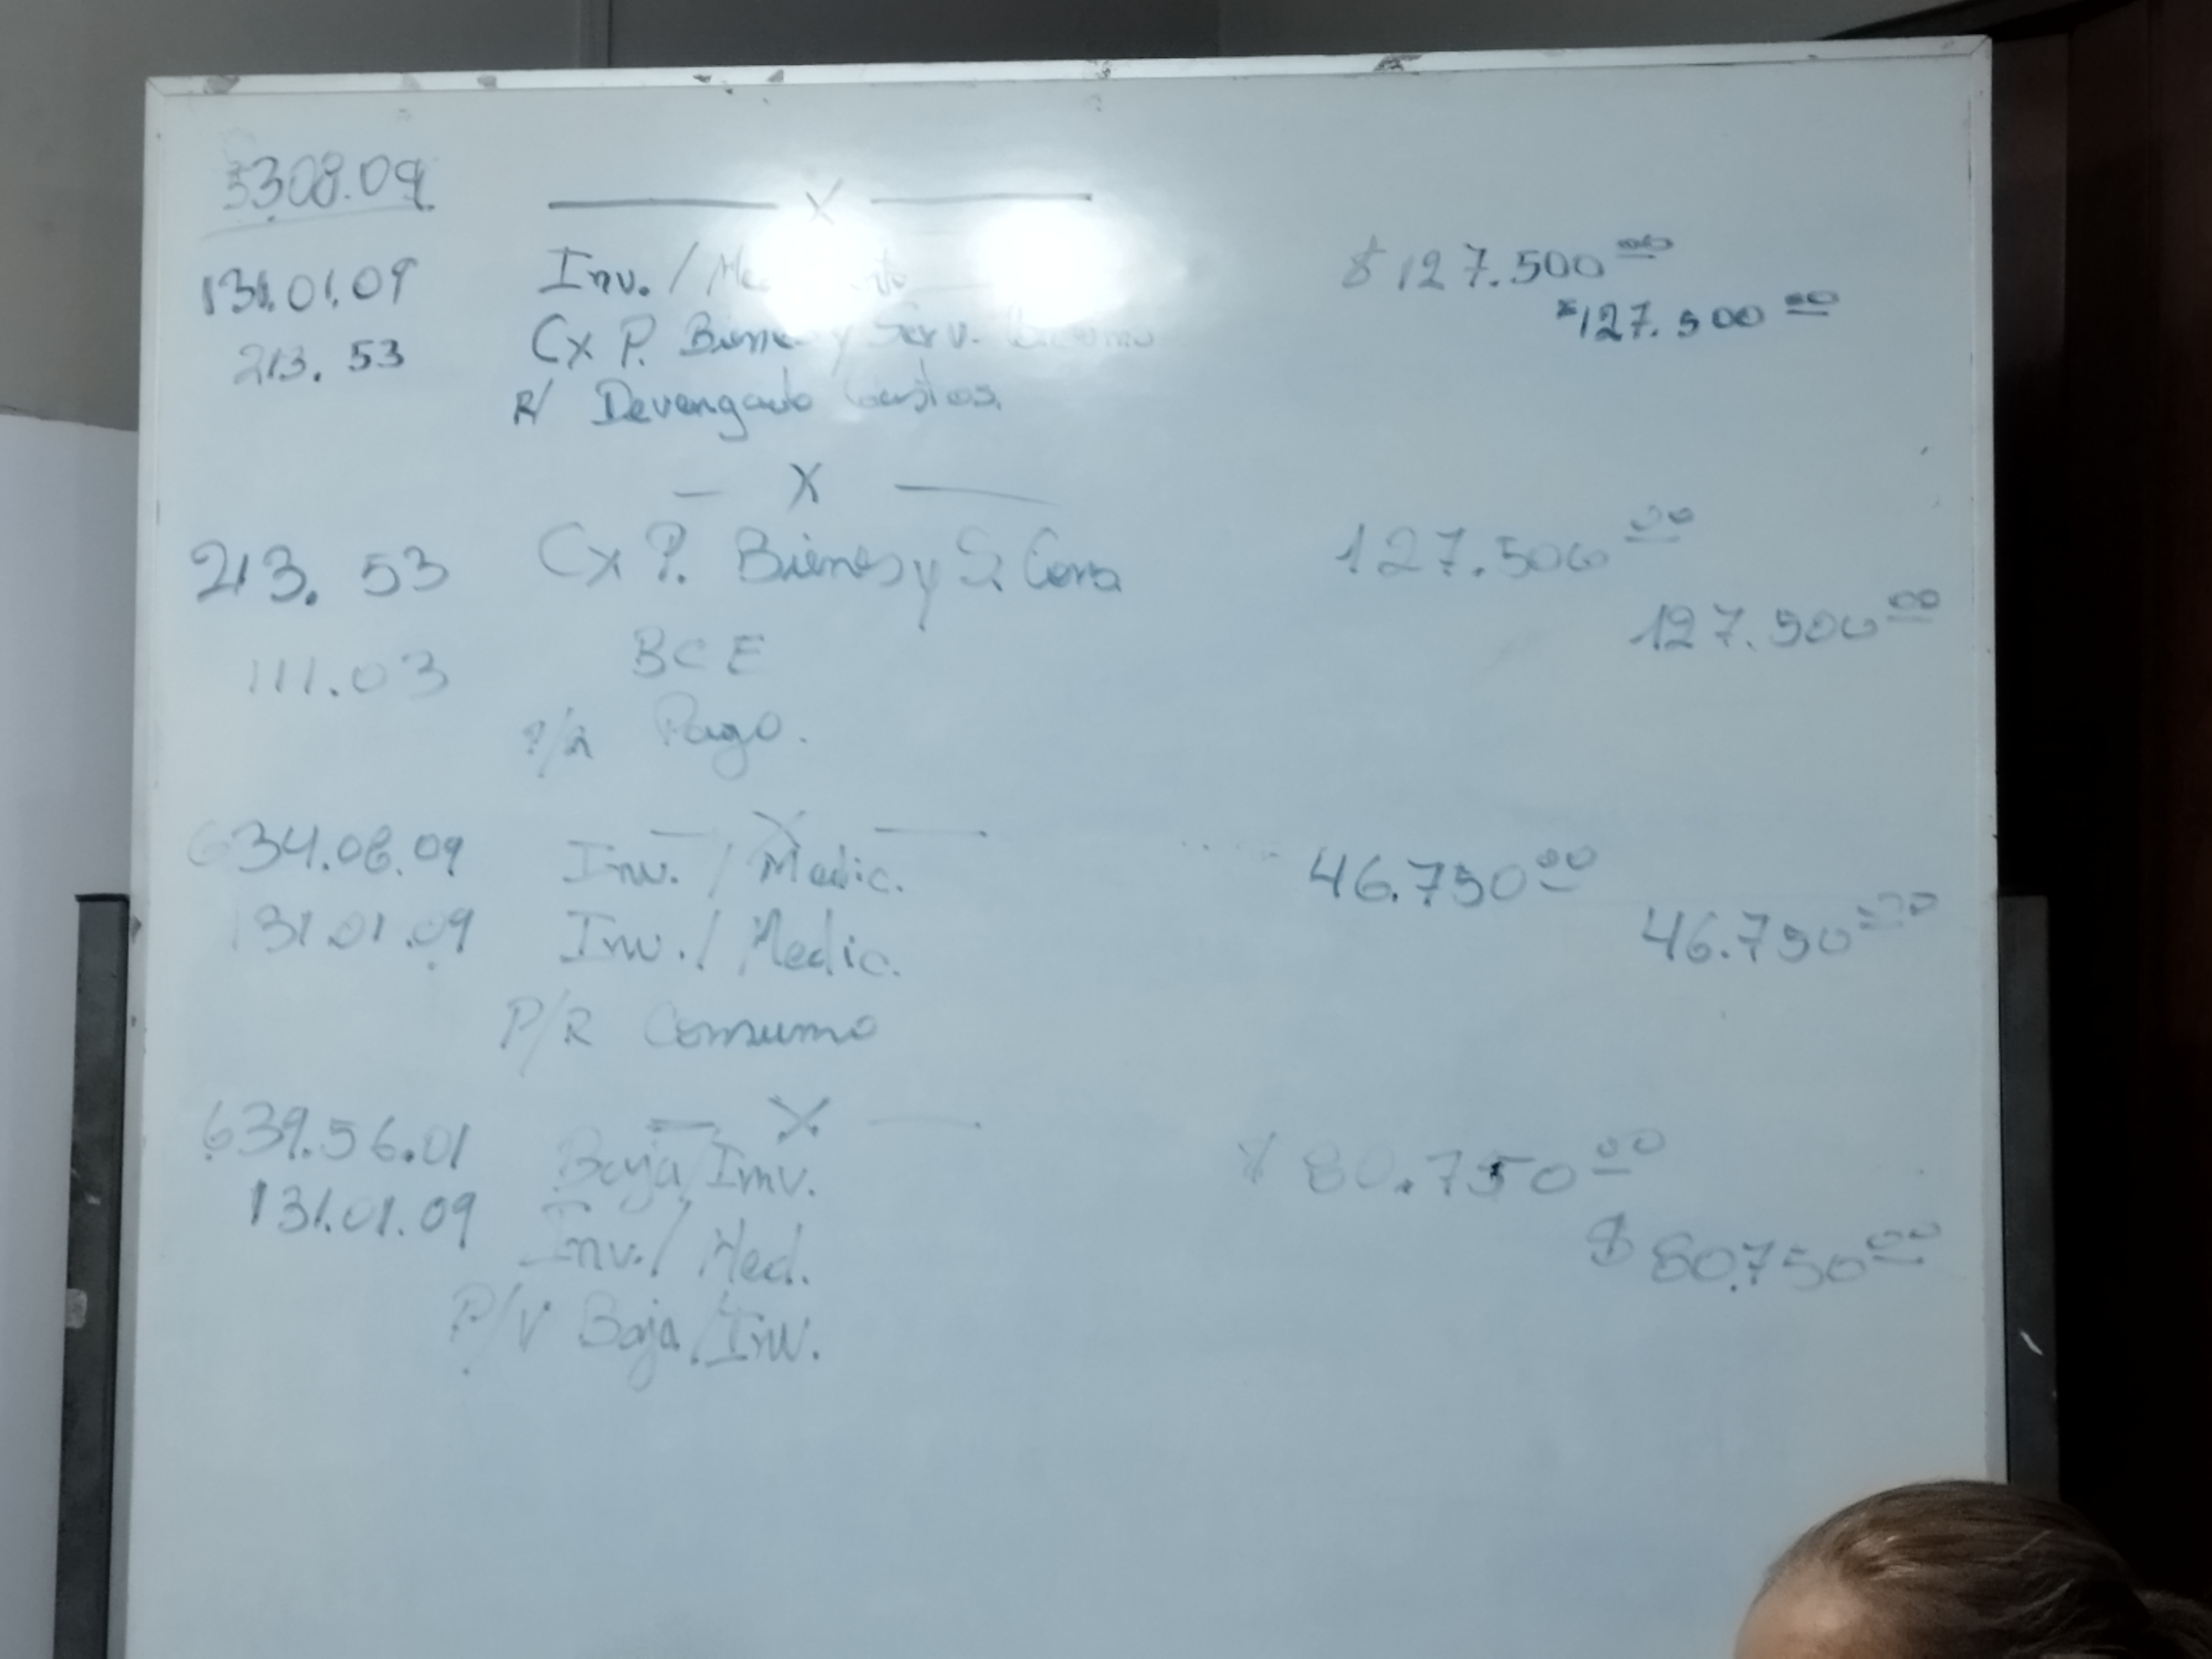 5308.09
X
131.01.09 Inv. / $127.500 00
213.53 Cx P. Bienes y Serv. $127.500 00
R/ Devengado Gastos.
X
213.53 Cx P. Bienes y S. Cons 127.500 00
111.03 BCE 127.500 00
P/R Pago.
X
634.08.09 Inv. / Medic. 46.750 00
131.01.09 Inv. / Medic. 46.750 00
P/R Consumo
X
639.56.01 Baja/Inv. $80.750 00
131.01.09 Inv./ Med. $80.750 00
Baja/Inv.